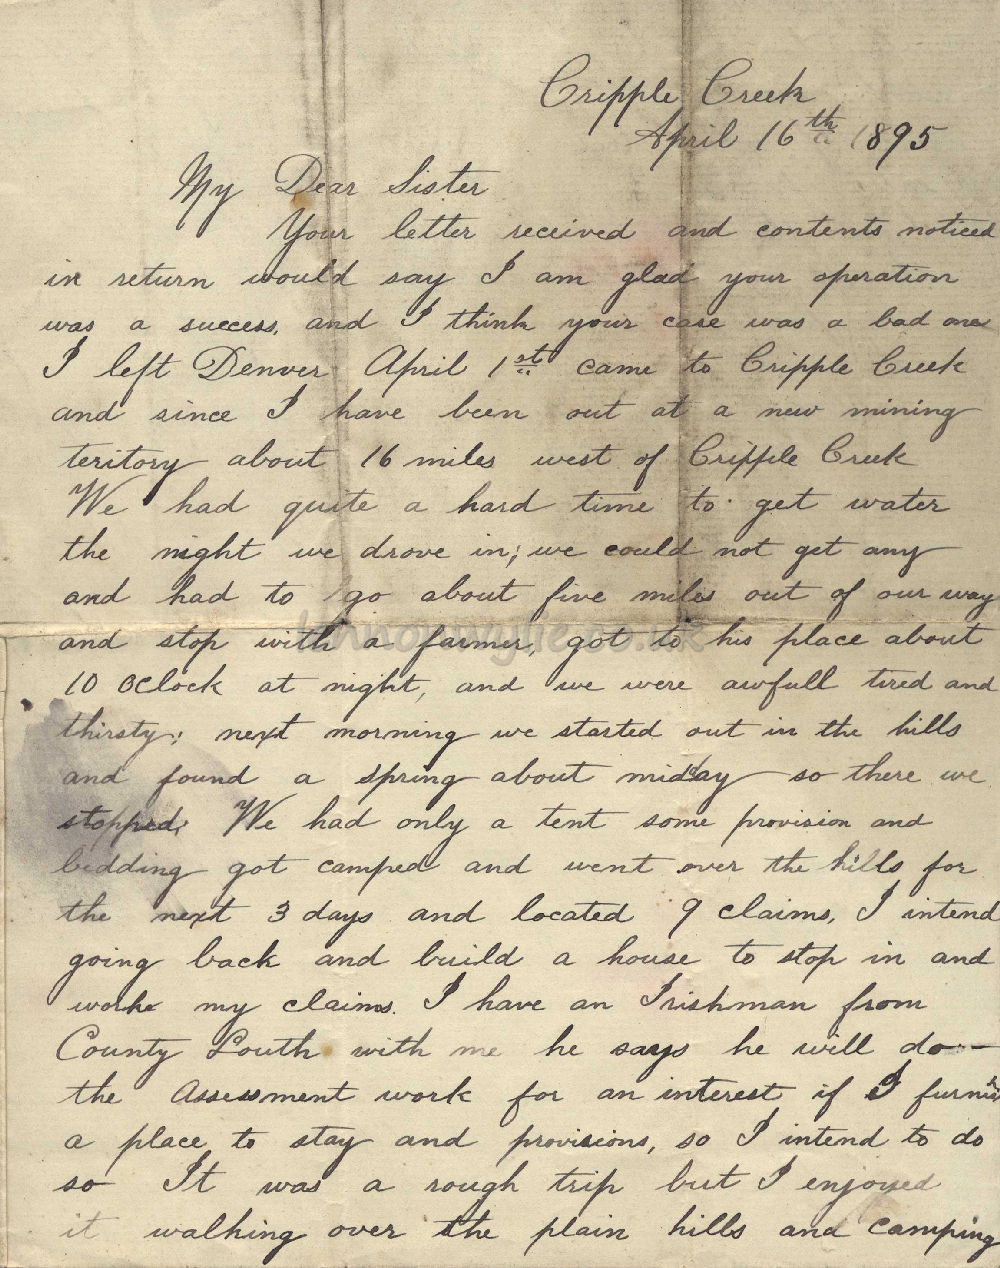 Cripple Creek
April 16th 1895
My Dear Sister
Your letter received and contents noticed
in return would say I am glad your operation
was a success, and I think your case was a bad one
I left Denver April 1st came to Cripple Creek
and since I have been out at a new mining
teritory about 16 miles west of Cripple Creek
We had quite a hard time to get water
the night we drove in; we could not get any
and had to go about five miles out of our way
lennonwylie.co.uk
and stop with a farmer, got to his place about
10 oClock at night, and we were awfull tired and
thirsty; next morning we started out in the hills
and found a spring about midday so there we
stopped. We had only a tent some provision and
bedding got camped and went over the hills for
the next 3 days and located 9 claims, I intend
going back and build a house to stop in and
work my claims. I have an Irishman from
County Louth with me he says he will do
the assessment work for an interest if I furnish
a place to stay and provisions, so I intend to do
so It was a rough trip but I enjoyed
it walking over the plain hills and camping